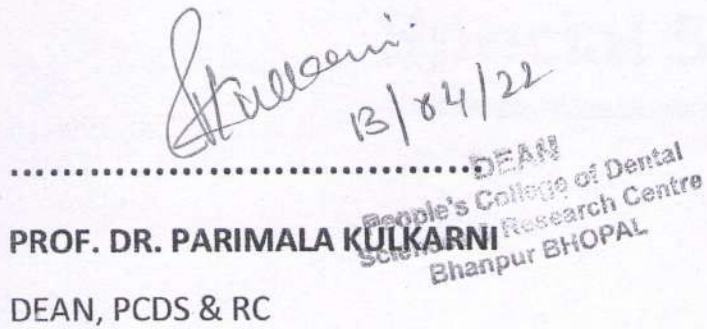 Kulkarni
13/04/22
DEAN
People's College of Dental
Sciences & Research Centre
Bhanpur BHOPAL
PROF. DR. PARIMALA KULKARNI
DEAN, PCDS & RC